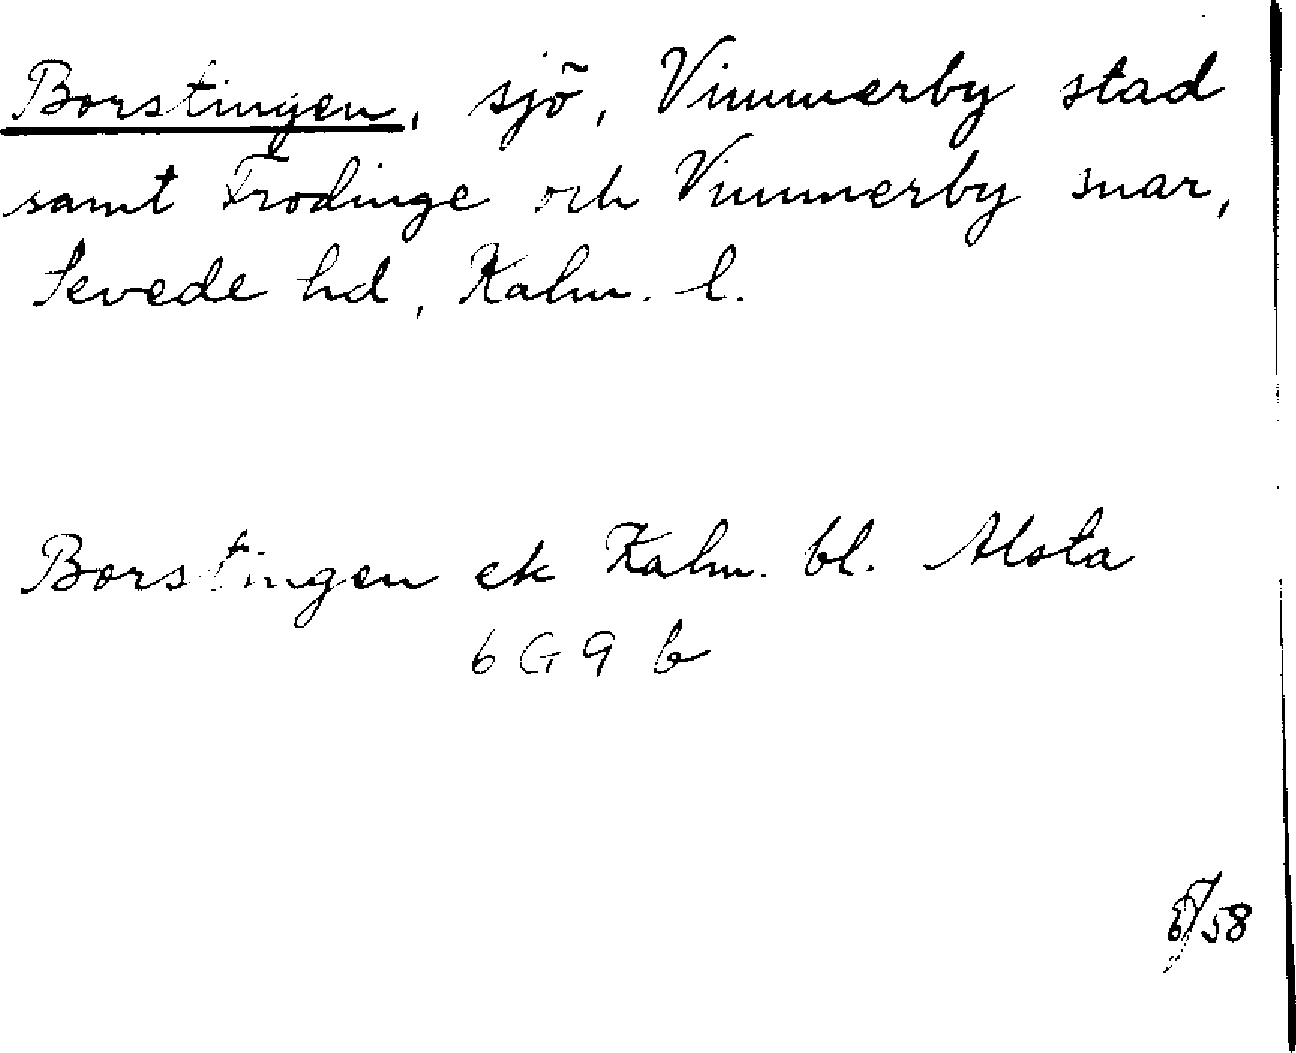 Borstingen, sjö, Vimmerby stad
samt Frödinge och Vimmerby snar,
Sevede hd, Kalm. l.
Borstingen ek Kalm. bl. Alsta
6 G 9 b
/58